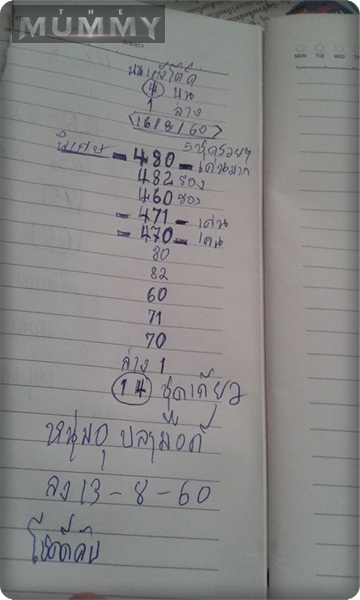 THE
MUMMY
MON TUE WED TH
4 บน
1 ล่าง
16/8/60
5 ชุดรวยๆ
พิเศษ - 480 - เด่นมาก
482 รอง
460 รอง
= 471 - เด่น
= 470 - เด่น
80
82
60
71
70
ล่าง 1
14 ชุดเดียว
หนุ่ม
ลง 13-8-60
โชคดีครับ